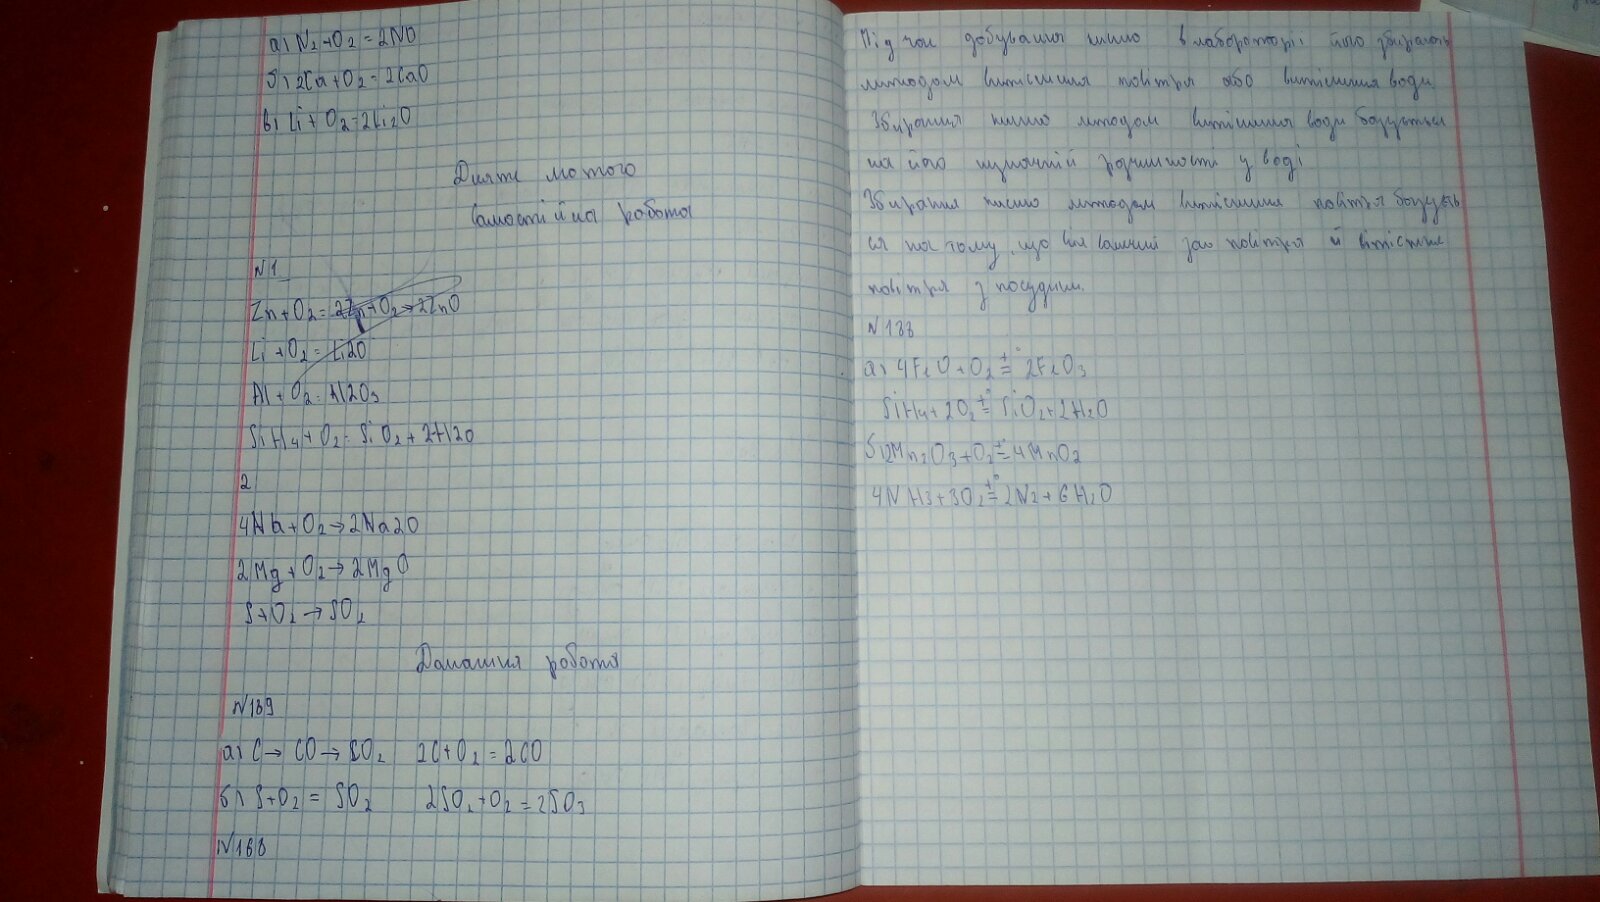 а) N2+O2=2NO
б) 2Ca+O2=2CaO
в) Li+O2=2Li2O
лютого
Самостійна робота
N1
Zn+O2=2Zn+O2→2ZnO
Li+O2=Li2O
Al+O2=Al2O3
SiH4+O2=SiO2+2H2O
2
4Na+O2→2Na2O
2Mg+O2→2MgO
S+O2→SO2
Домашня робота
N189
а) C→CO→CO2 2C+O2=2CO
б) S+O2=SO2 2SO2+O2=2SO3
N188
Під час добування кисню в лабораторії його збирають
методом витіснення повітря або витіснення води.
Збирання кисню методом витіснення води базується
на його незначній розчинності у воді
Збирання кисню методом витіснення повітря базуєть
ся на тому, що він важчий за повітря й витісняє
повітря з посудини.
N188
а) 4FeO+O2 t°= 2Fe2O3
SiH4+2O2 t°= SiO2+2H2O
б) 2Mn2O3+O2 t°= 4MnO2
4NH3+3O2 t°= 2N2+6H2O